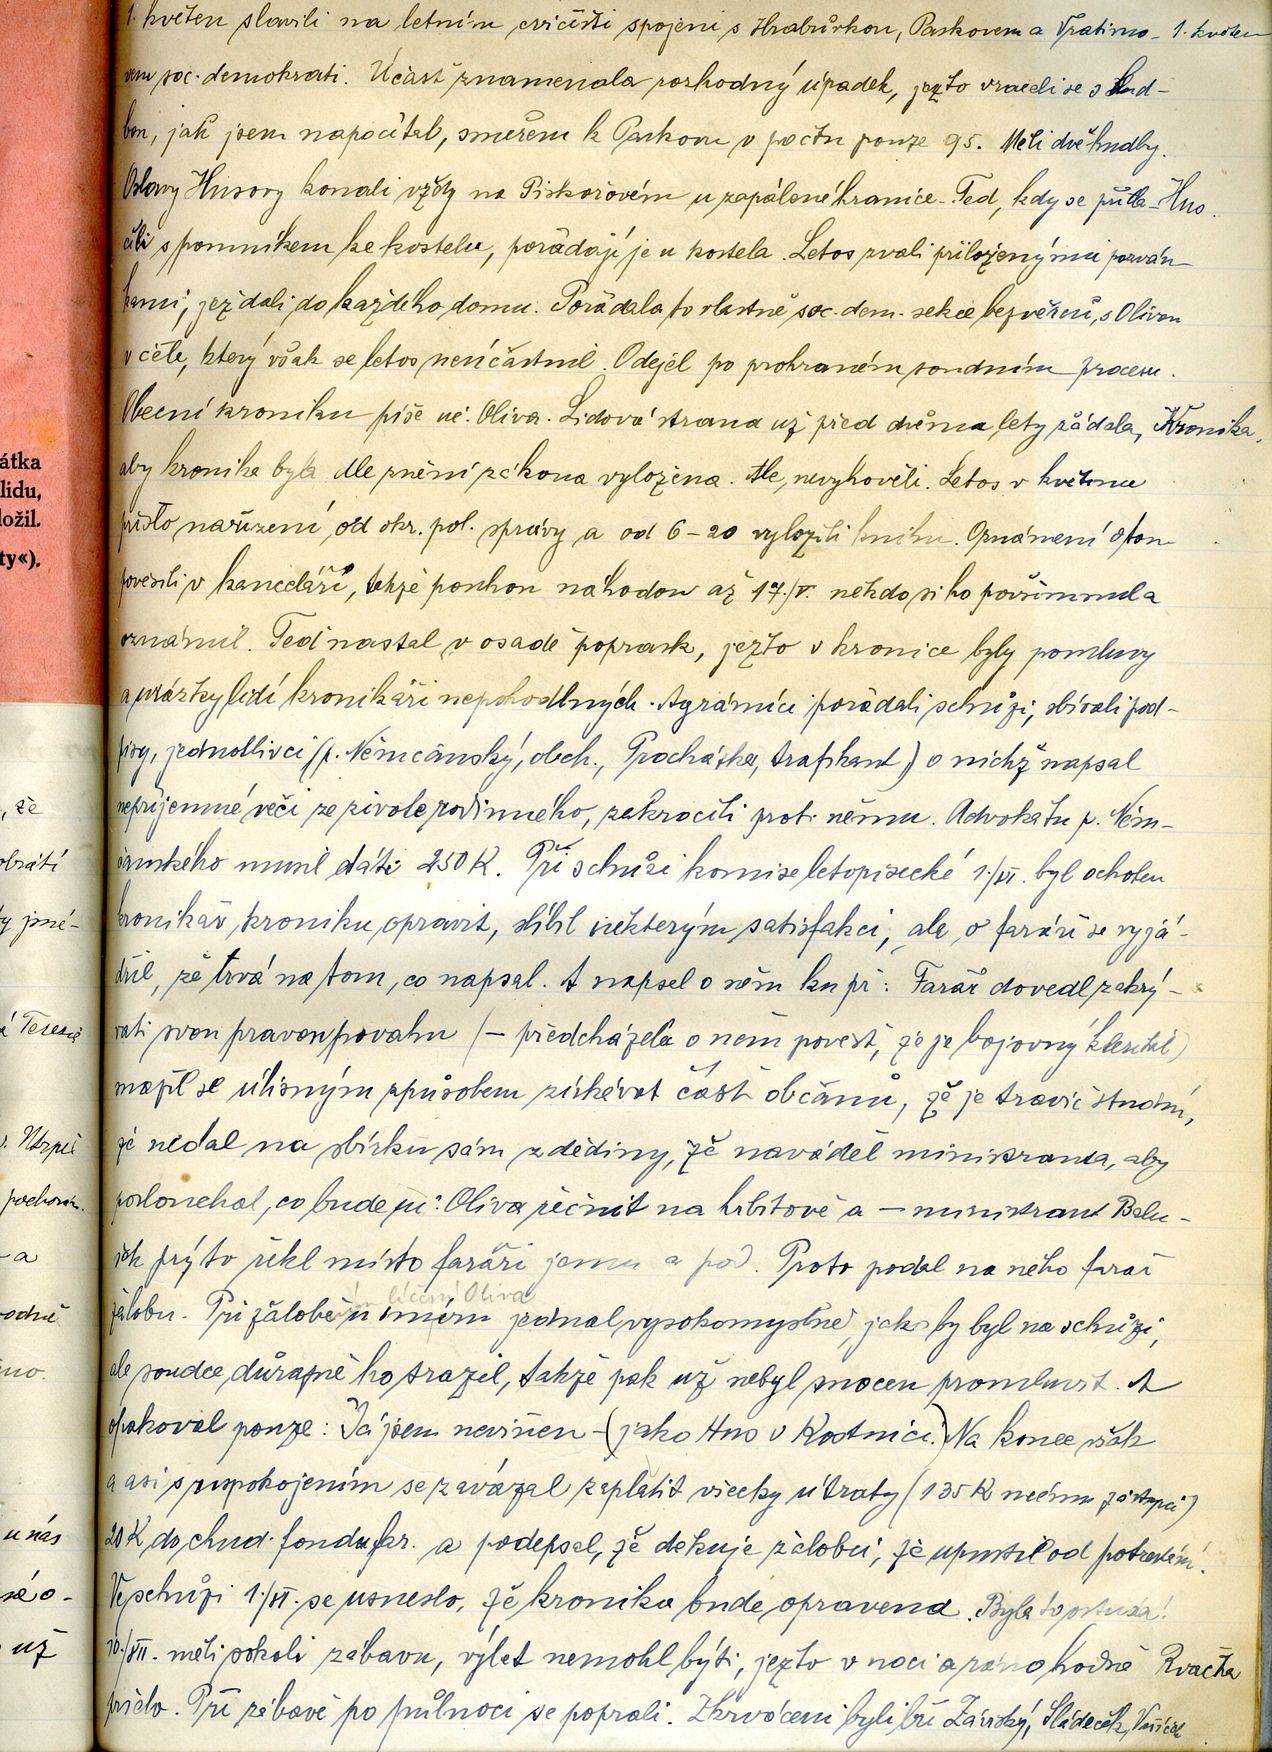 1. květen slavili na letním cvičišti spojeni s Hrabůvkou, Paskovem a Vratimo- 1. květen
vem soc. demokrati. Účast znamenala rozhodný úpadek, ježto vraceli se s hud-
bou, jak jsem napočítal, směrem k Paskovu v počtu pouze 95. Měli dvě hudby.
Oslavy Husovy konali vždy na Piskořovém u zapálené hranice. Teď, kdy se přitla- Hus.
čili s pomníkem ke kostelu, pořádají je u kostela. Letos zvali přiloženými pozván-
kami, jež dali do každého domu. Pořádala to vlastně soc. dem. sekce bezvěrců, s Olivou
v čele, který však se letos neúčastnil. Odejel po prohraném soudním procesu.
Obecní kroniku píše uč. Oliva. Lidová strana už před dvěma lety žádala, Kronika.
aby kronika byla dle znění zákona vyložena. Ale, nevyhověli. Letos v květnu
přišlo nařízení od okr. pol. správy a od 6-20 vyložili knihu. Oznámení o tom
pověsili v kanceláři, takže pouhou náhodou až 17./V. někdo si ho povšimnul a
oznámil. Teď nastal v osadě poprask, ježto v kronice byly pomluvy
a urážky lidí kronikáři nepohodlných. Agrárníci pořádali schůzi, sbírali pod-
pisy, jednotlivci (p. Němčanský, obch., Procházka, trafikant) o nichž napsal
nepříjemné věci ze života rodinného, zakročili proti němu. Advokátu p. Něm-
čanského musil dáti 250 K. Při schůzi komise letopisecké 1./VI. byl ochoten
kronikář kroniku opravit, slíbil některým satisfakci, ale o faráři se vyjá-
dřil, že trvá na tom, co napsal. A napsal o něm ku př.: Farář dovedl zakrý-
vati svou pravou povahu (- předcházela o něm pověst, že je bojovný klerikál)
snažil se úlisným způsobem získávat část občanů, že je travič studní,
že nedal na sbírku sám z dědiny, že naváděl ministranta, aby
poslouchal, co bude uč. Oliva řečnit na hřbitově a - ministrant Balu-
sek prý to řekl místo faráři jemu a pod. Proto podal na něho farář
žalobu. Při líčení Oliva
žalobě u smíru jednal vysokomyslně, jako by byl na schůzi,
ale soudce důrazně ho srazil, takže pak už nebyl mocen promluvit. A
opakoval pouze: Já jsem nevinen - (jako Hus v Kostnici.) Na konec však
a asi s uspokojením se zavázal zaplatit všecky útraty (135 K mému zástupci)
20 K do chud. fondu fkr. a podepsal, že děkuje žalobci, že upustil od potrestání.
Ve schůzi 1./VI. se usneslo, že kronika bude opravena. Byla to ostuda!
10./VII. měli sokoli zábavu, výlet nemohl býti, ježto v noci a ráno hodně Rvačka
pršelo. Při zábavě po půlnoci se poprali. Zkrváceni byli bří Závišký, Sládeček,